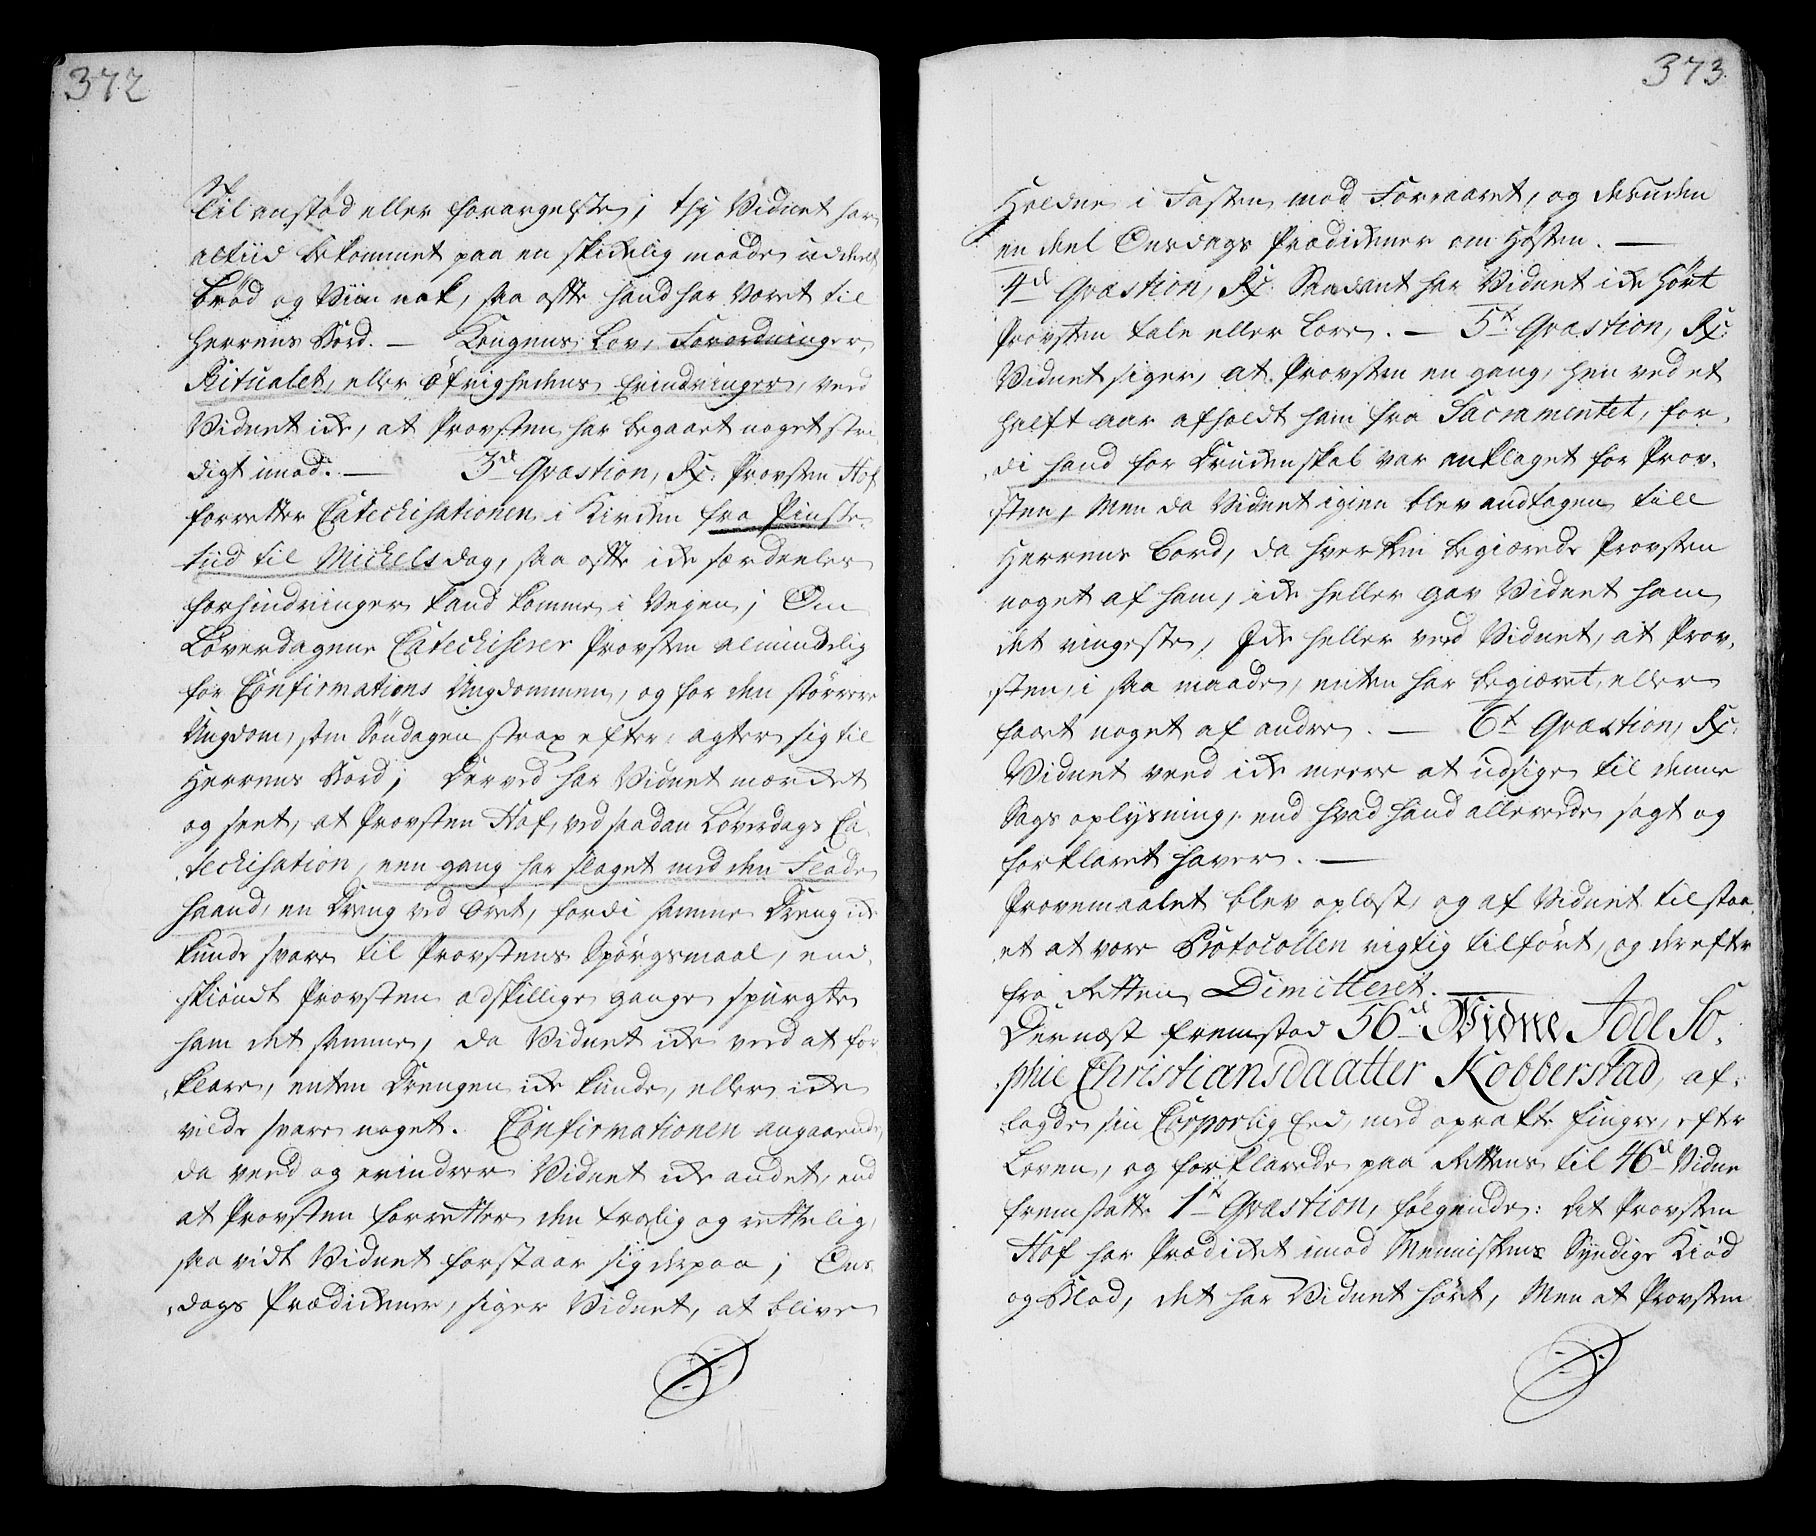 372
Til anstød eller forargelse; thi Vidnet har
altiid bekommet paa en skikelig maade uddeelt
brød og Viin nok, saa ofte hand har Været til
Herrens Bord. — Kongens Lov, Forordninger,
Ritualet, eller Øfrighedens Erindringer, veed
Vidnet icke, at Provsten har begaaet noget stri
digt imod. — 3d Qvæstion, Rx: Provsten Hof
forretter Catechisationen i Kirken fra Pintse
tiid til Michels dag, saa ofte icke særdeeles
forhindringer kand komme i Vejen; Om
Løverdagene Catechiserer Provsten almindelig
for Confirmations Ungdommen, og for den større
Ungdom, som Søndagen strax efter agter sig til
Herrens Bord; Derved har Vidnet mærcket
og seet, at Provsten Hof, ved saadan Løverdags Ca
techisation, een gang har slaget med den flade
haand, en Dreng ved Øret, fordi samme Dreng ick
kunde svare til Provstens Spørgsmaal, end
skiøndt Provsten adskillige gange spurgte
ham det samme, da Vidnet icke veed at for
klare, enten Drengen icke kunde, eller icke
vilde svare noget. Confirmationen angaaende,
da veed og erindrer Vidnet icke andet, end
at Provsten forretter den trolig og rettelig,
saa vidt Vidnet forstaar sig derpaa; Ons
dags Prædickener, siger Vidnet, at blive
373
Holdne i Fasten mod Foraaret, og desuden
en deel Onsdags Prædickener om Høsten. —
4d Qvæstion, Rx: Saadant har Vidnet icke hørt
Provsten tale eller lære. — 5t Qvæstion, Rx:
Vidnet siger, at Provsten en gang, hen ved et
halft aar afholdt ham fra Sacramentet, for
di hand for Druckenskab var anklaget for Prov
sten, Men da Vidnet igien blev andtagen till
Herrens Bord, da hverken begiærede Provsten
noget af ham, icke heller gav Vidnet ham
det ringeste, Icke heller veed Vidnet, at Prov
sten, i saa maade, enten har begiæret, eller
faaet noget af andre. — 6t Qvæstion, Rx:
Vidnet veed icke meere at udsige til denne
Sags oplysning, end hvad hand allereede sagt og
forklaret haver. —
Provemaalet blev oplæst, og af Vidnet tilstaa
et at være Protocollen rigtig tilført, og derefter
fra Retten Dimitteret.
Dernæst fremstod 56d Vidne Adel So
phie Christiansdaatter Kobberstad, af
lagde sin Corporlig Eed, med oprakte Fingre, efter
Loven, og forklarede paa Rettens til 46d Vidne
fremsatte 1t Qvæstion, følgende: At Provsten
Hof har Prædicket imod Menniskens Syndige Kiød
og Blod, det har Vidnet hørt, Men at Provsten